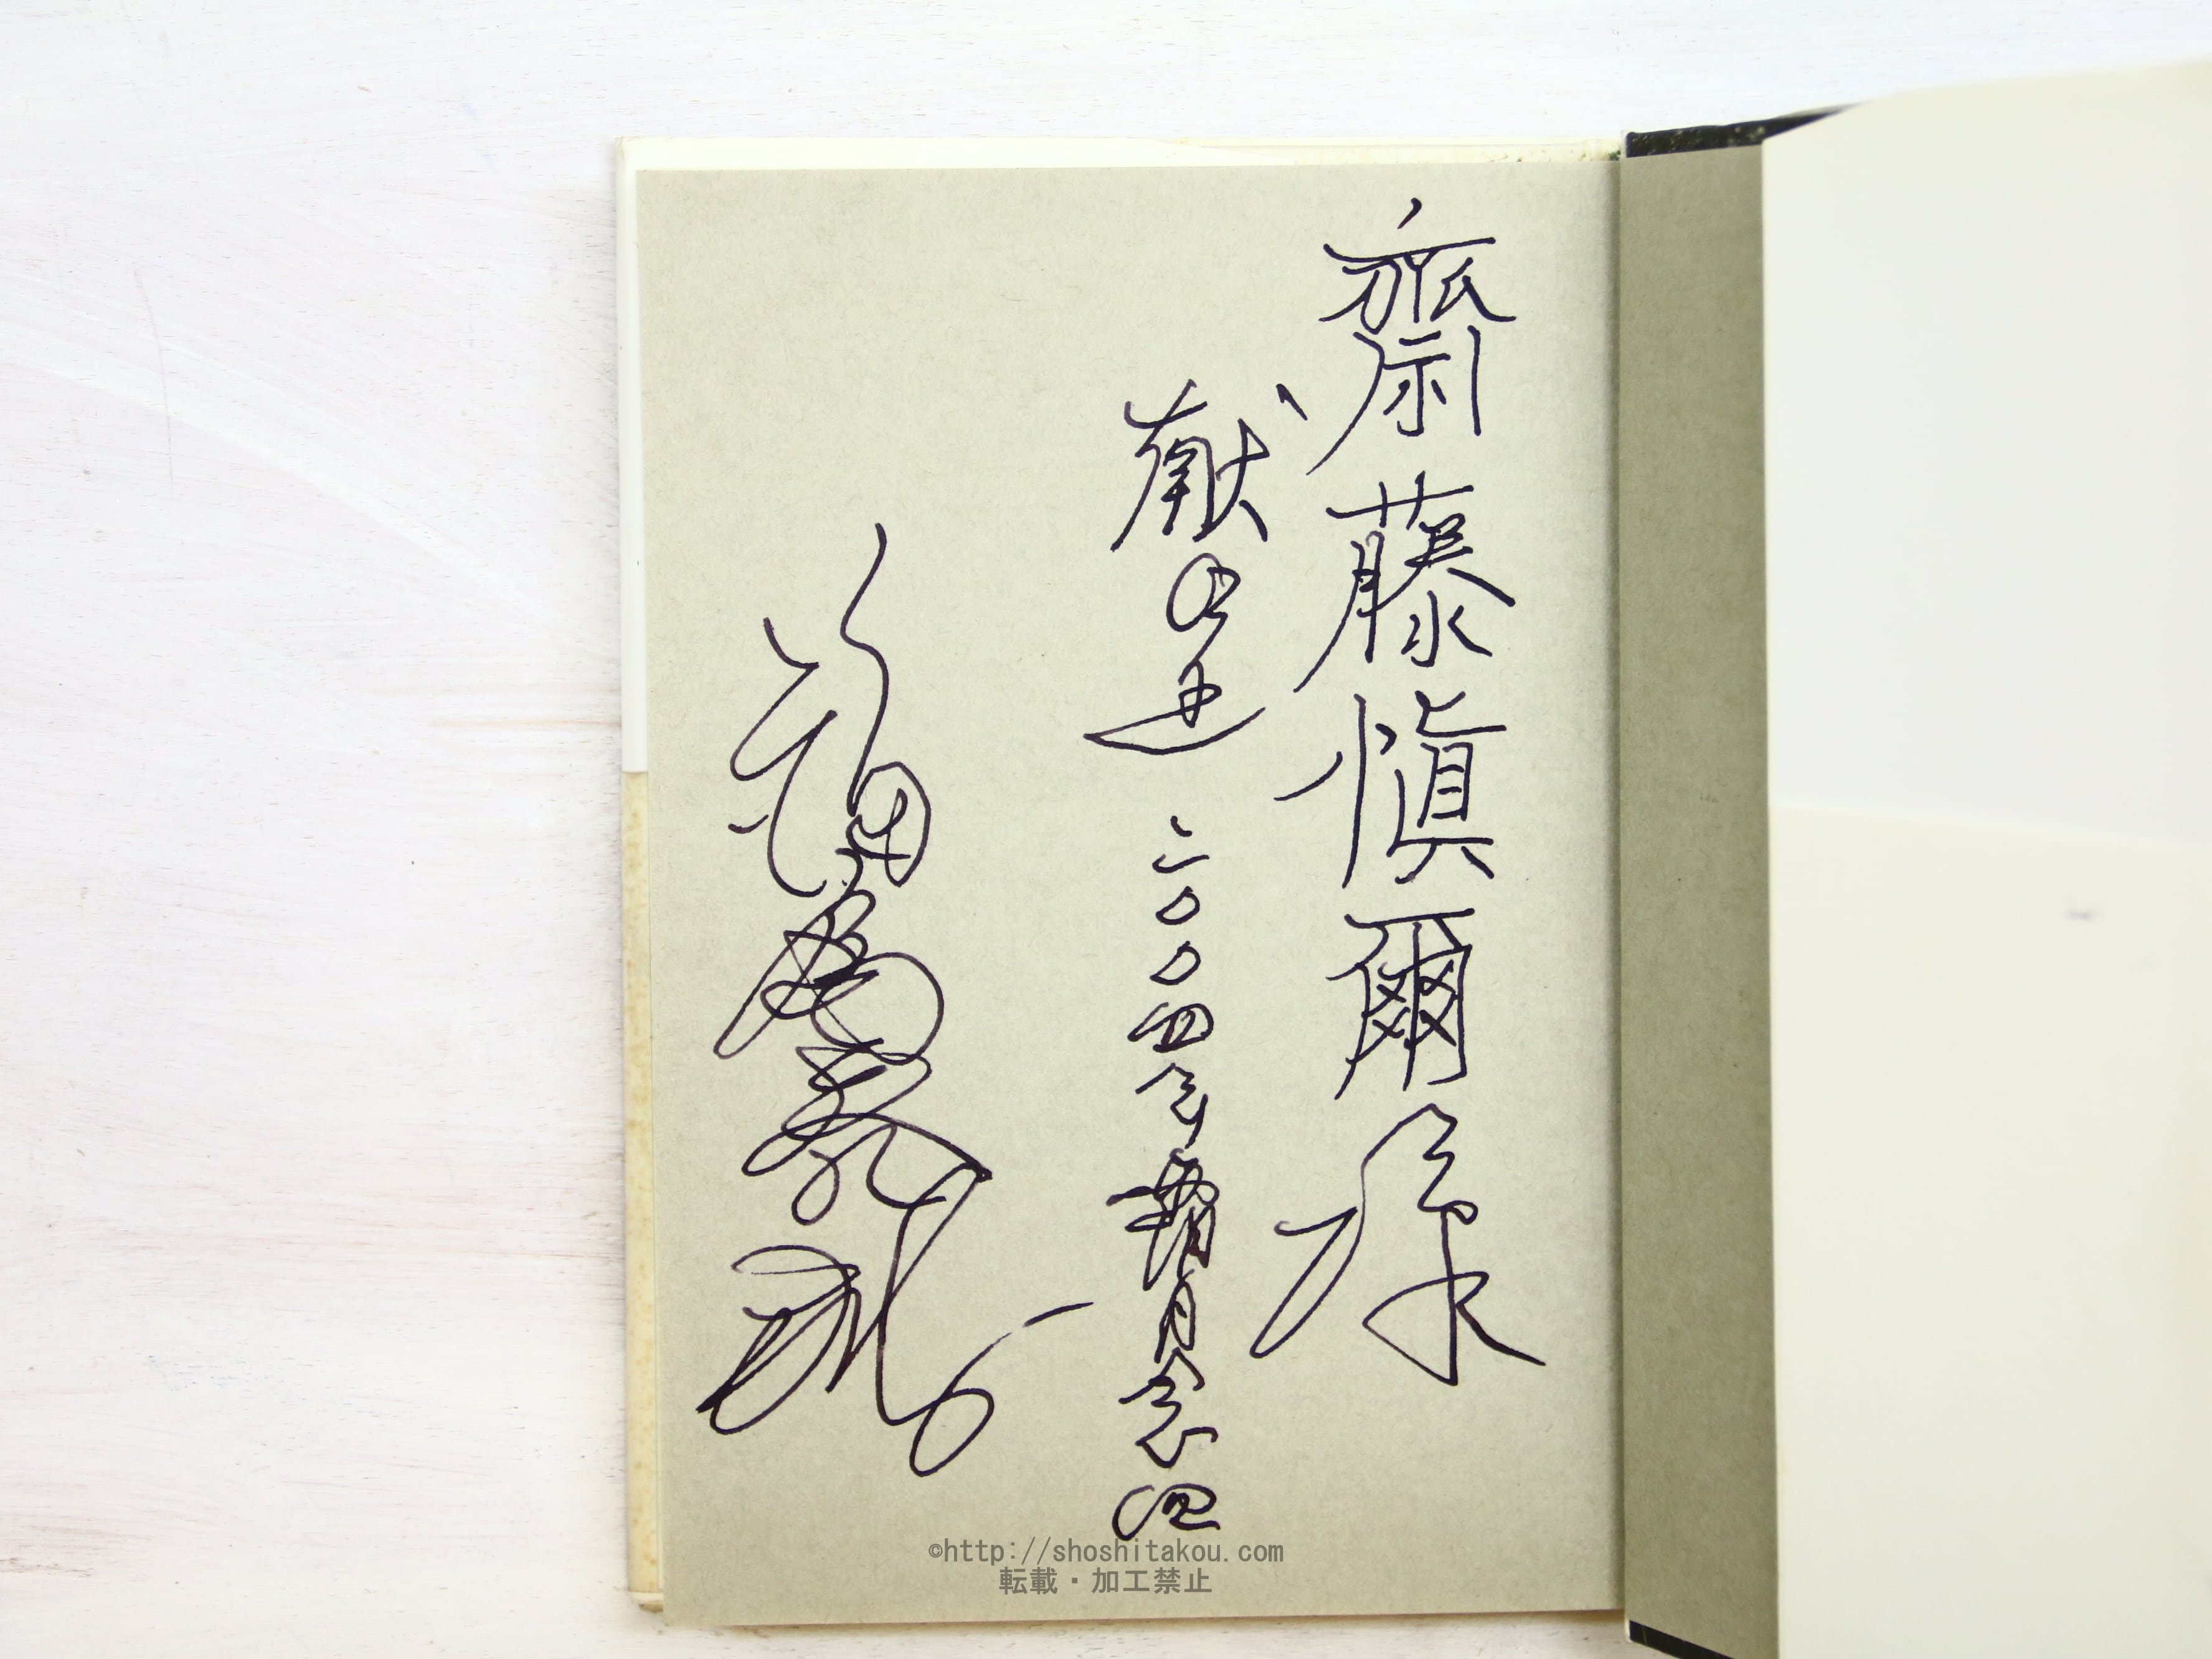 齋藤愼爾様
献呈 二〇〇四年霜月念四
福島泰樹
©http://shoshitakou.com
転載・加工禁止